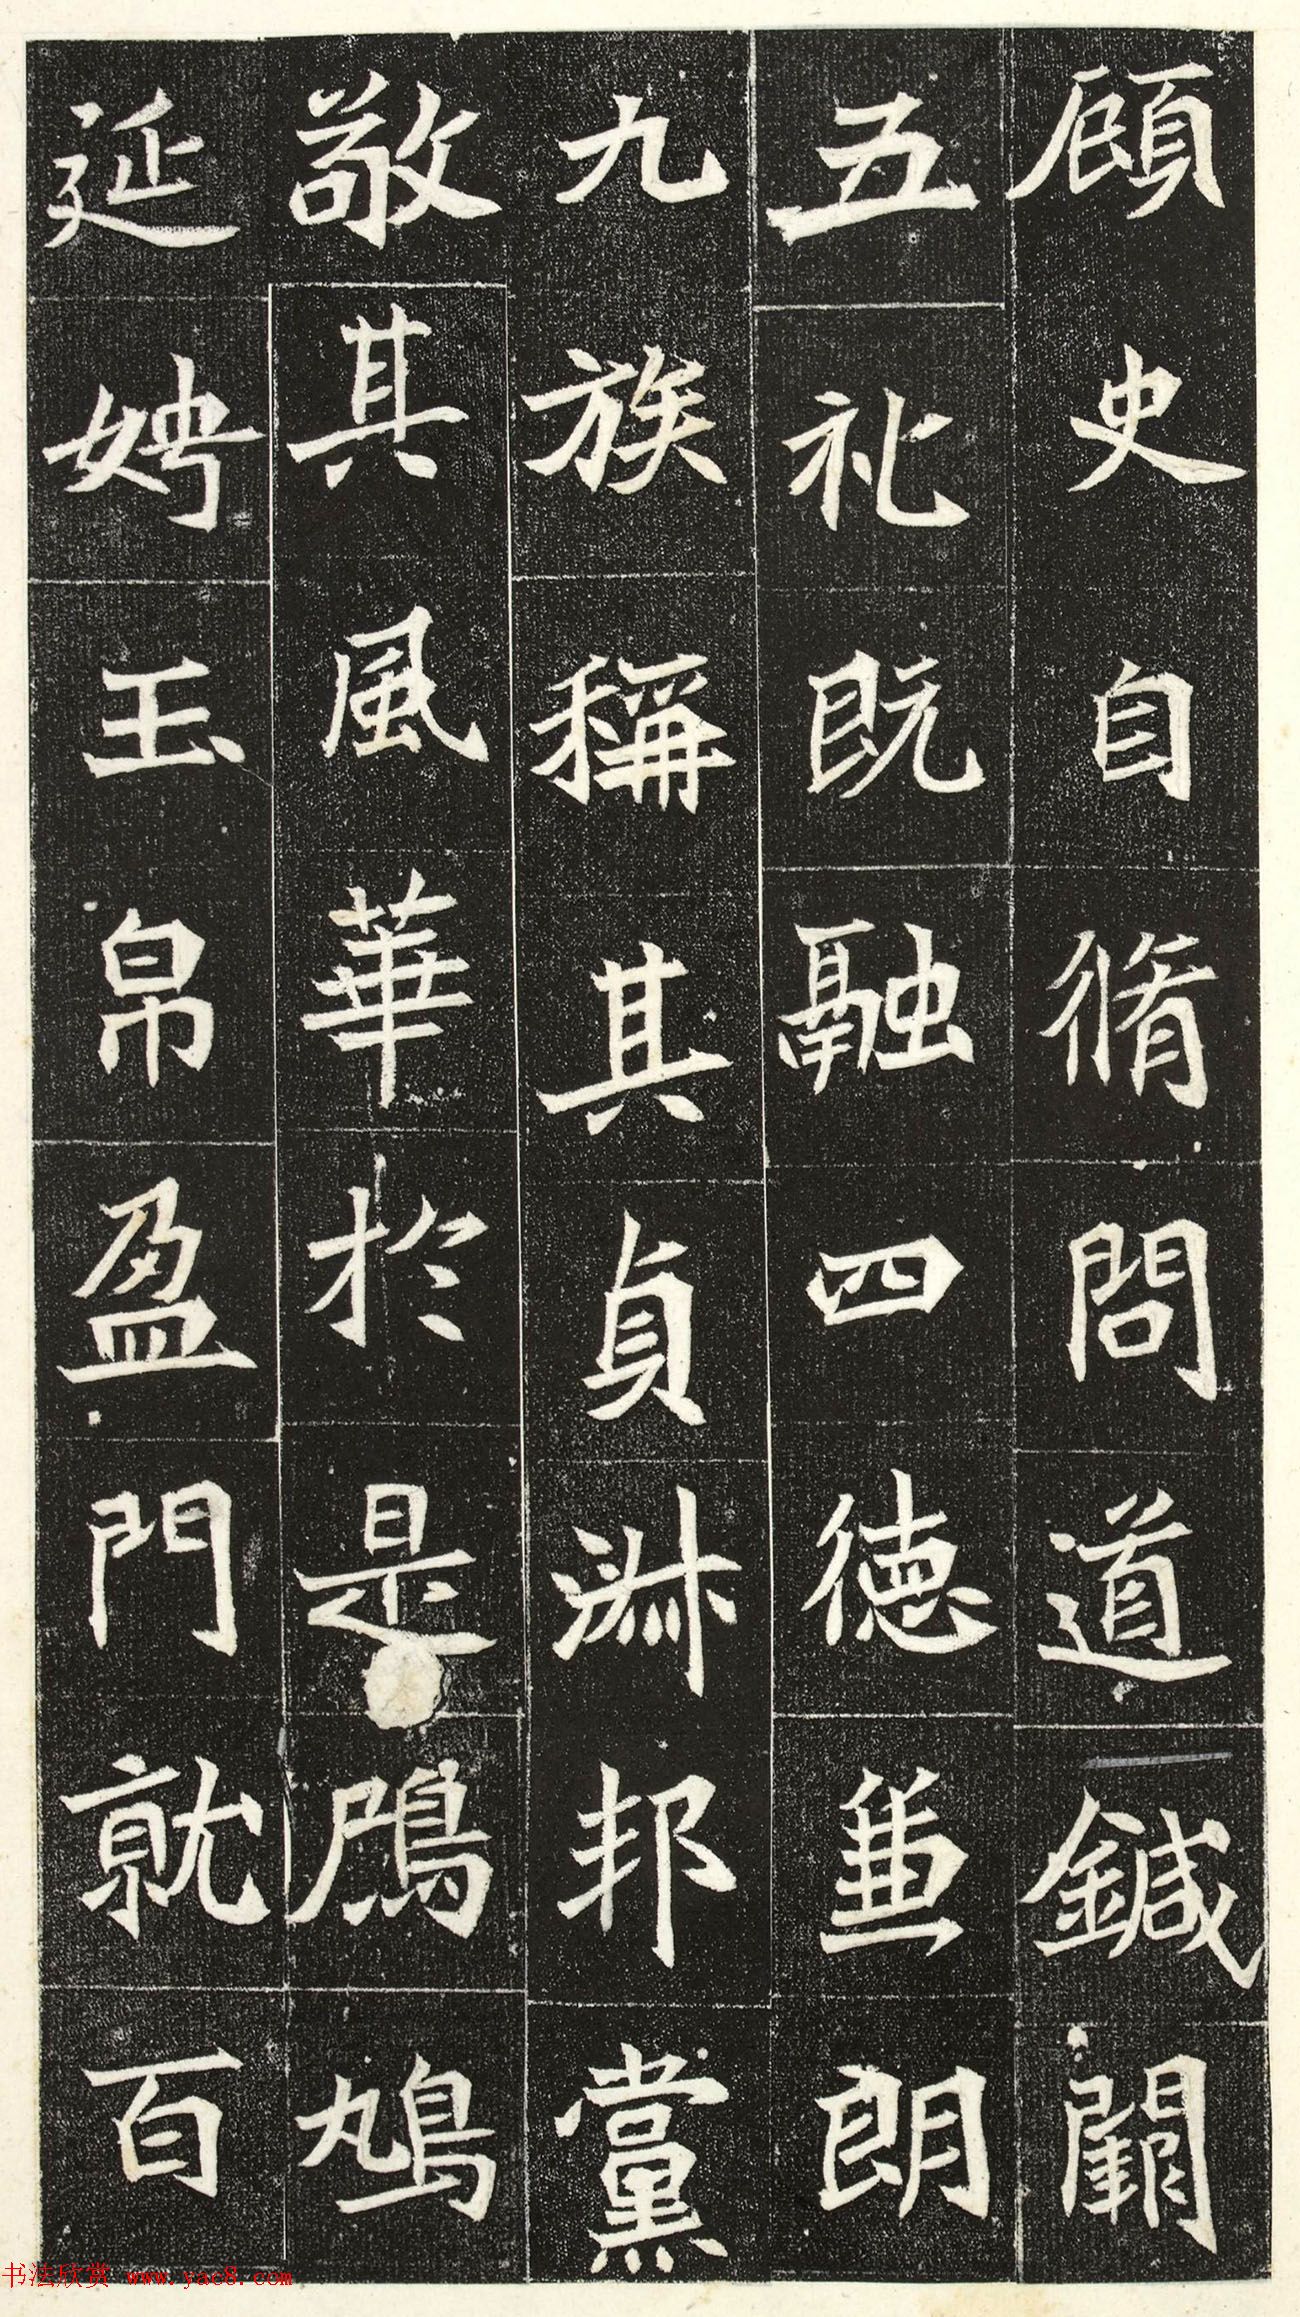 顧史自脩問道鍼闢
五礼既融四德兼朗
九族稱其貞淑邦黨
敬其風華於是鴈鳩
延娉玉帛盈門就百
书法欣赏 www.yac8.com